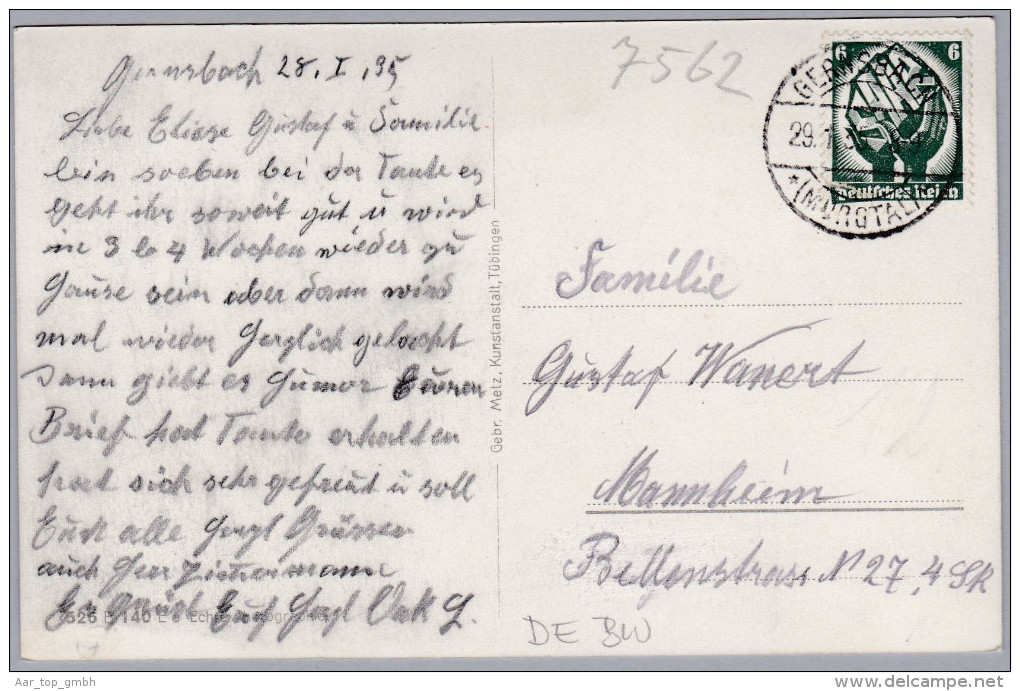 Gernsbach 28.I.35
Liebe Eliese Gustaf u Familie
bin soeben bei der Tante es
geht ihr soweit gut u wird
in 3 b 4 Wochen wieder zu
Hause sein aber dann wird
mal wieder Herzlich gelacht
Dann giebt es Humor Euren
Brief hat Tante erhalten
hat sich sehr gefreut u soll
Euch alle Herzl Grüssen
auch Herr Zimmermann
Es Grüst Euch Herzl
526 B 140 Echte
Gebr. Metz, Kunstanstalt, Tübingen
7562
GERNSBACH
29.1.35
*(MURGTAL)
6 6
Deutsches Reich
Familie
Gustaf Wanert
Mannheim
N 27, 4 Sk
DE BW
Aar_top_gmbh
delcampe.net